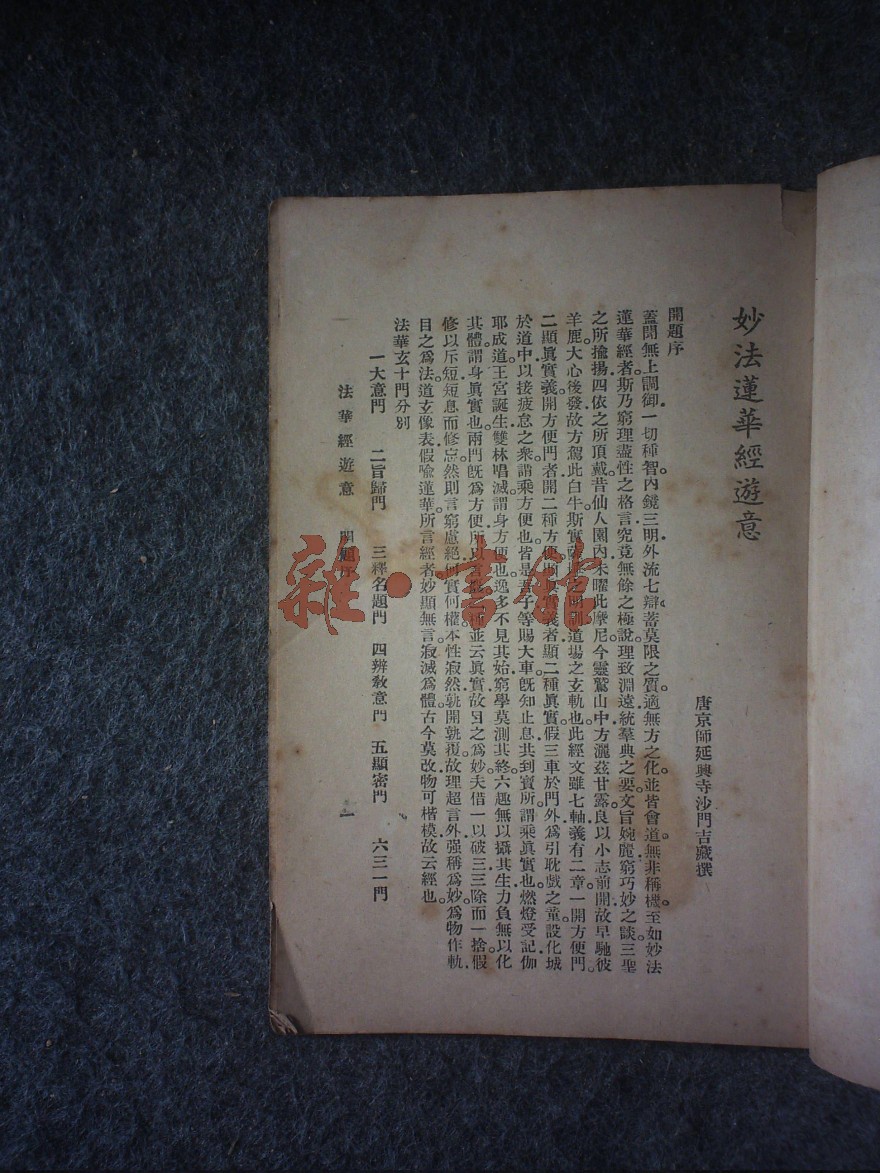 妙法蓮華經遊意
唐京師延興寺沙門吉藏撰
開題序
蓋聞無上調御一切種智內鏡三明外流七辯蓄莫限之質適無方之化並皆會道無非稱機至如妙法
蓮華經者斯乃窮理盡性之格言究竟無餘之極說理致淵遠統羣典之要文旨婉麗窮巧妙之談三聖
之所揄揚四依之所頂戴昔仙人園內未曜此摩尼今靈鷲山中方灑茲甘露良以小志前開故早馳彼
羊鹿大心後發故方駕此白牛斯實 之明訓道場之玄軌也此經文雖七軸義有二章一開方便門
二顯眞實義開方便門者開二種方便 義者顯二種眞實假三車於門外爲引耽戲之童設化城
於道中以接疲怠之衆謂乘方便也皆是 子等賜大車旣知止息共到寶所謂乘眞實也燃燈受記伽
耶成道王宮誕生雙林唱滅謂身方便也逸多不見其始窮學莫測其終六趣無以攝其生力負無以化
其體謂身眞實也兩門旣爲方便所以 並云眞實故目之爲妙夫借一以破三三除而一捨假
修以斥短短息而修忘然則言窮慮絕何實何權本性寂然孰開孰覆故理超言外强稱爲妙爲物作軌
目之爲法道玄像表假喩蓮華所言經者妙顯無言寂滅爲體古今莫改物可楷模故云經也
法華玄十門分別
一大意門 二旨歸門 三釋名題門 四辨敎意門 五顯密門 六三一門
法華經遊意 開題序 一
雜·書館